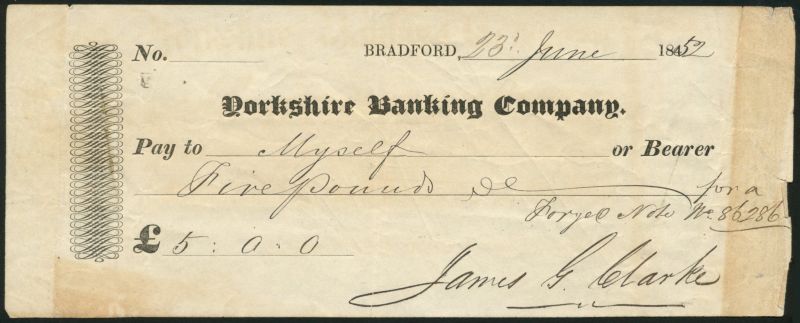 No. BRADFORD, 23d June 1852
Yorkshire Banking Company.
Pay to Myself or Bearer
Five pounds for a
Forged Note No. 86286
£ 5 : 0 : 0
James G. Clarke